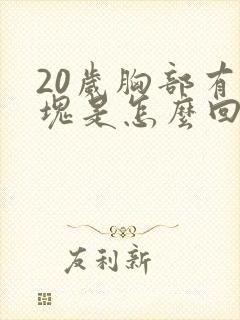 20歲胸部有
塊是怎麼回
友利新